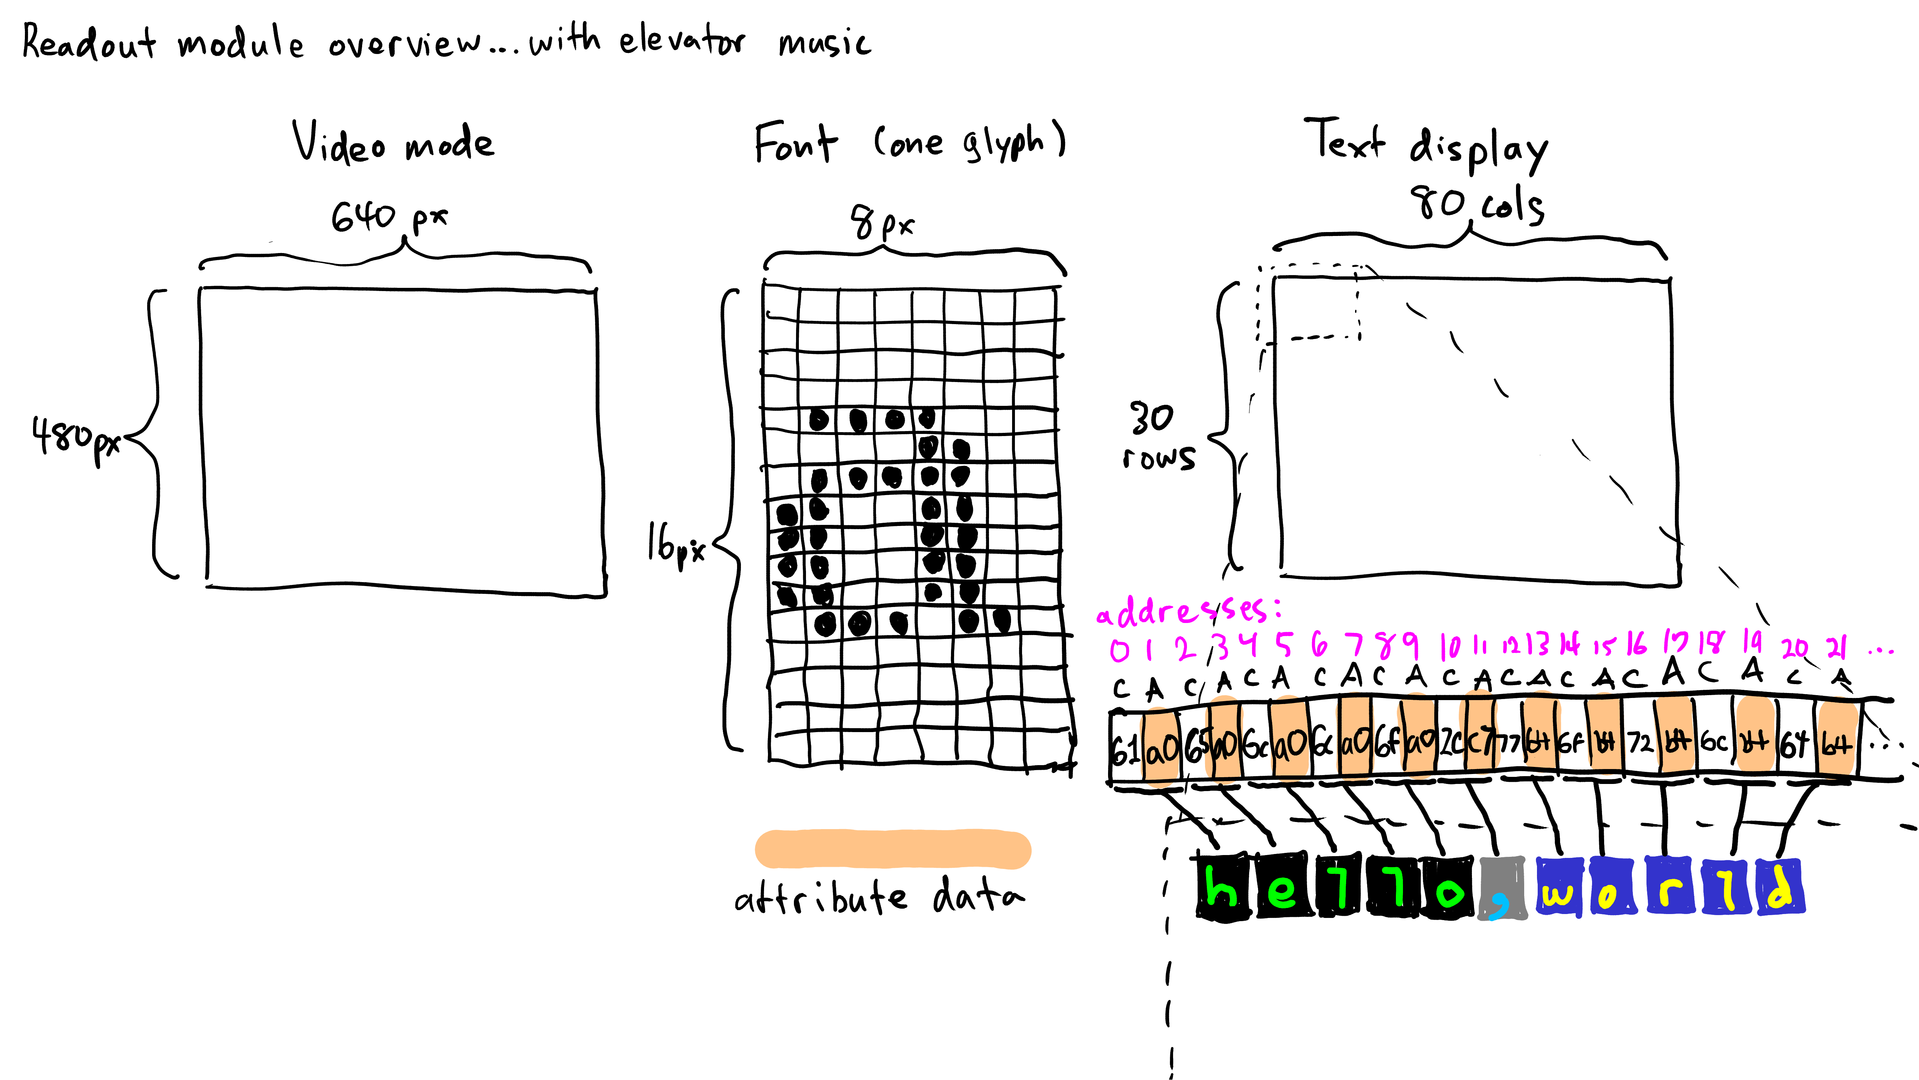 Readout module overview...with elevator music
Video mode
640 px
480px
Font (one glyph)
8px
16px
attribute data
Text display
80 cols
30 rows
addresses:
0 1 2 3 4 5 6 7 8 9 10 11 12 13 14 15 16 17 18 19 20 21 ...
C A C A C A C A C A C A C A C A C A C A C A
61 a0 65 a0 6c a0 6c a0 6f a0 2c c7 77 b4 6f b4 72 b4 6c b4 64 b4 ...
hello, world